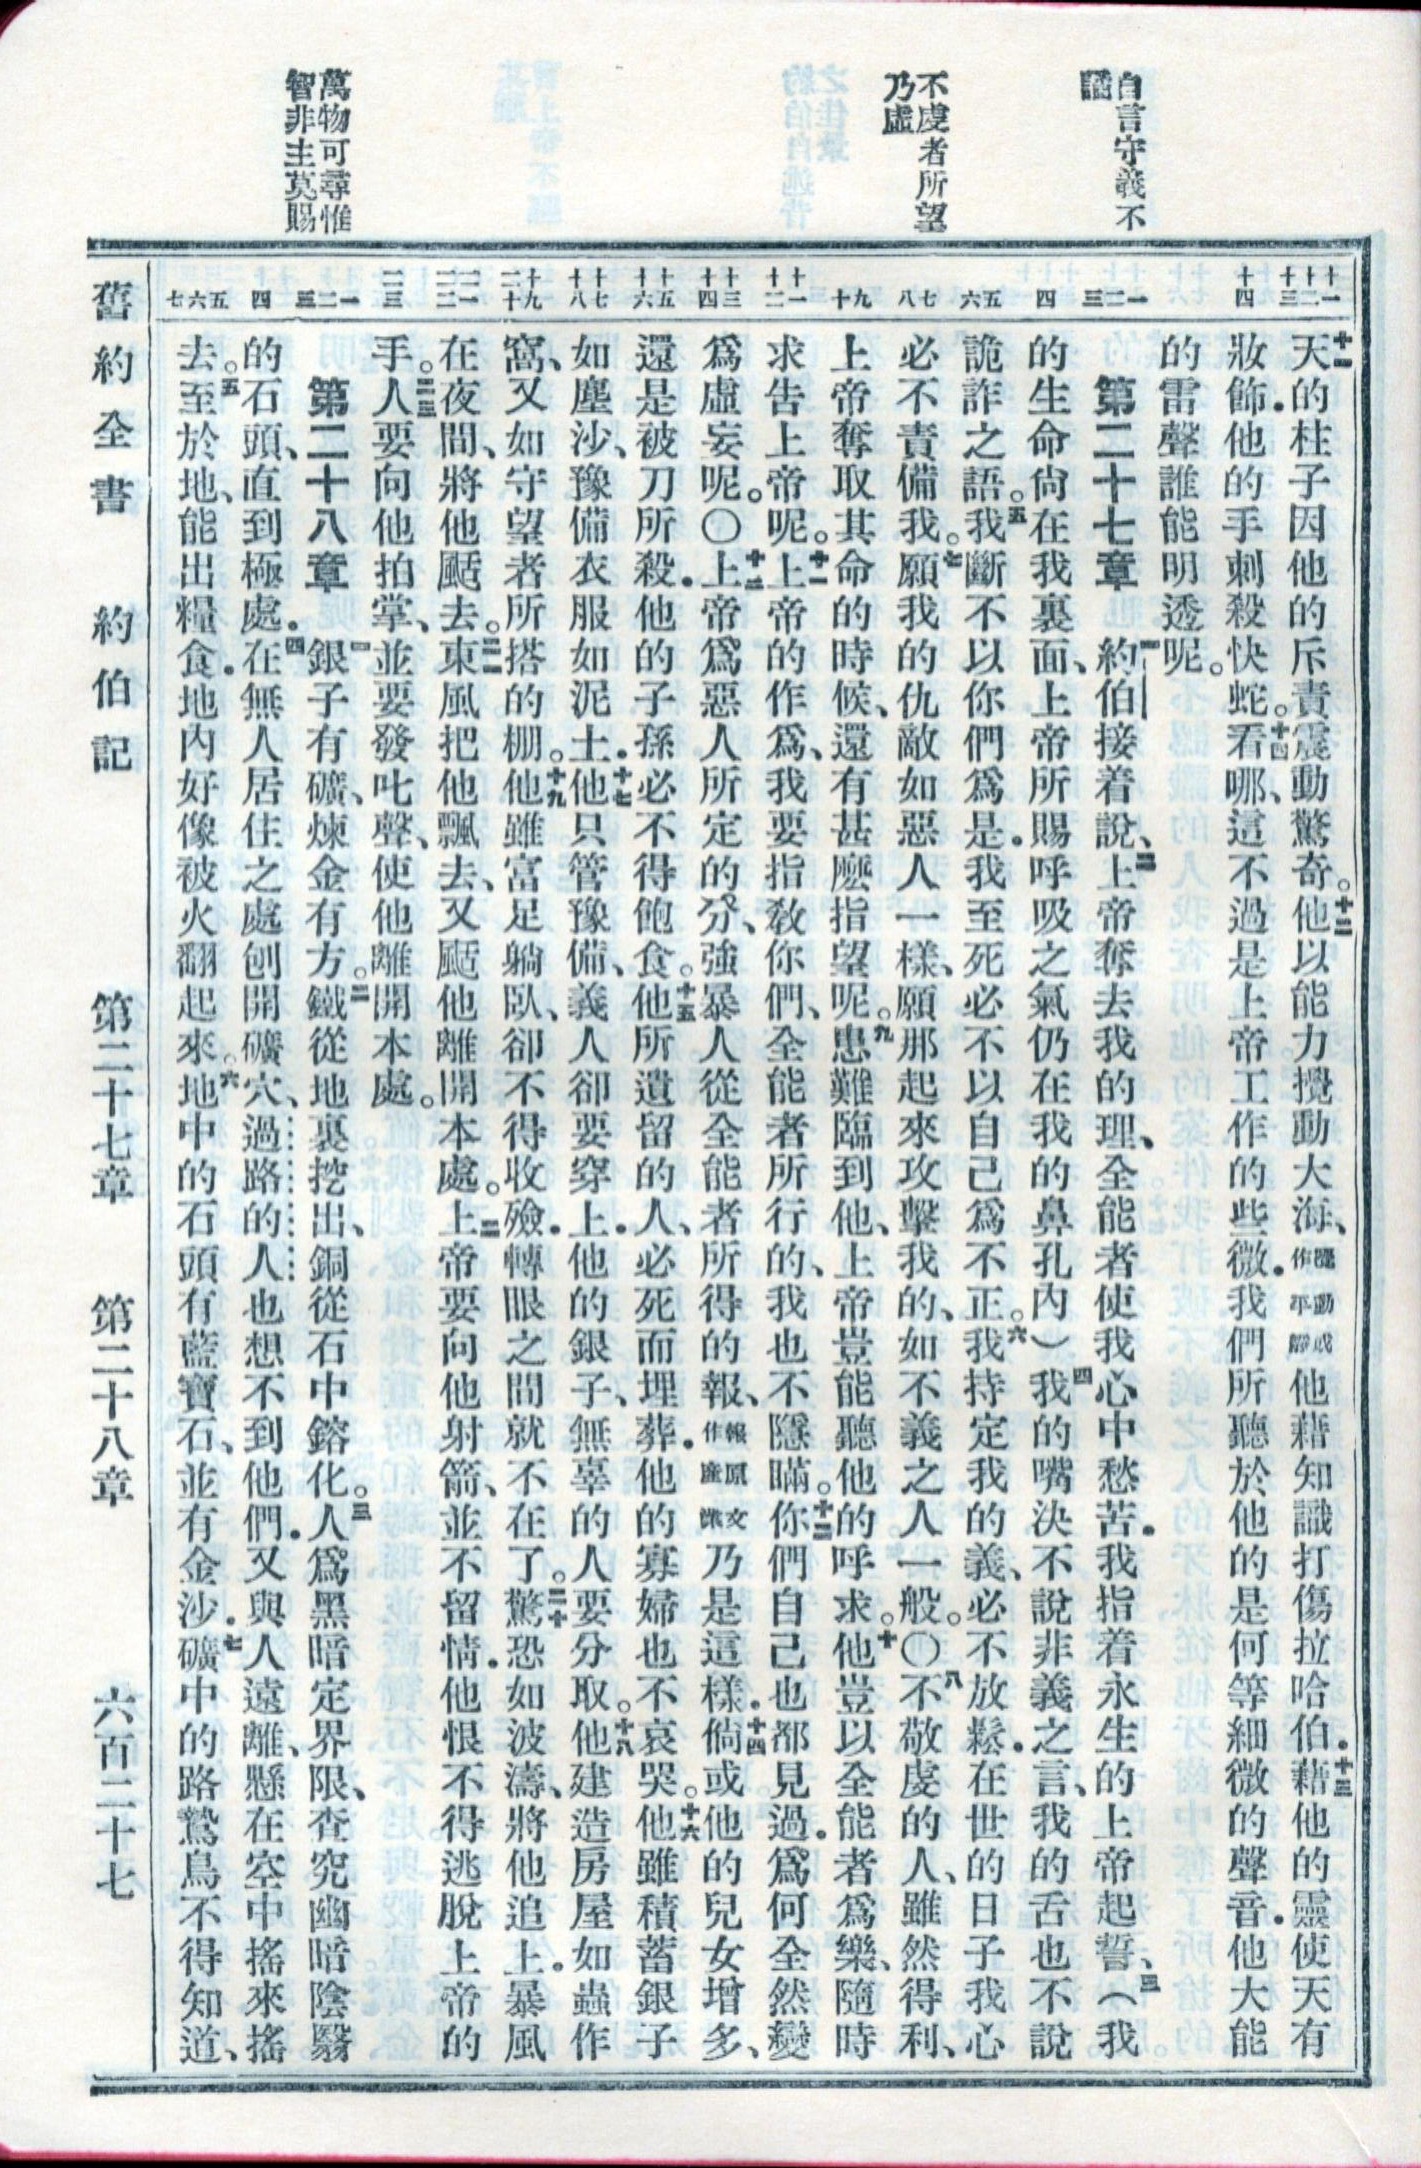 自言守義不
譎
不虔者所望
乃虛
萬物可尋惟
智非主莫賜
十一 十二 十三
十四
一 二 三
四
五 六
七 八
九 十
十一 十二
十三 十四
十五 十六
十七 十八
十九 二十
二一 二二
二三
一 二 三
四
五 六 七
十一天的柱子因他的斥責震動驚奇。十二他以能力攪動大海、攪動或作平靜他藉知識打傷拉哈伯．十三藉他的靈使天有
妝飾．他的手刺殺快蛇。十四看哪、這不過是上帝工作的些微．我們所聽於他的是何等細微的聲音．他大能
的雷聲誰能明透呢。
第二十七章 一約伯接着說、二上帝奪去我的理、全能者使我心中愁苦．我指着永生的上帝起誓、三（我
的生命尙在我裏面、上帝所賜呼吸之氣仍在我的鼻孔內）四我的嘴決不說非義之言、我的舌也不說
詭詐之語。五我斷不以你們爲是．我至死必不以自己爲不正。六我持定我的義、必不放鬆．在世的日子我心
必不責備我。七願我的仇敵如惡人一樣、願那起來攻擊我的、如不義之人一般。〇八不敬虔的人、雖然得利、
上帝奪取其命的時候、還有甚麽指望呢。九患難臨到他、上帝豈能聽他的呼求。十他豈以全能者爲樂、隨時
求告上帝呢。十一上帝的作爲、我要指敎你們、全能者所行的、我也不隱瞞。十二你們自己也都見過．爲何全然變
爲虛妄呢。〇十三上帝爲惡人所定的分、強暴人從全能者所得的報、報原文作產業乃是這樣．十四倘或他的兒女增多、
還是被刀所殺．他的子孫必不得飽食。十五他所遺留的人、必死而埋葬．他的寡婦也不哀哭。十六他雖積蓄銀子
如塵沙、豫備衣服如泥土．十七他只管豫備、義人卻要穿上．他的銀子、無辜的人要分取。十八他建造房屋如蟲作
窩、又如守望者所搭的棚。十九他雖富足躺臥、卻不得收殮．轉眼之間就不在了。二十驚恐如波濤、將他追上．暴風
在夜間、將他颳去。二一東風把他飄去、又颳他離開本處。二二上帝要向他射箭、並不留情．他恨不得逃脫上帝的
手。二三人要向他拍掌、並要發叱聲、使他離開本處。
第二十八章 一銀子有礦、煉金有方。二鐵從地裏挖出、銅從石中鎔化。三人爲黑暗定界限、查究幽暗陰翳
的石頭、直到極處．四在無人居住之處刨開礦穴、過路的人也想不到他們．又與人遠離、懸在空中搖來搖
去。五至於地、能出糧食．地內好像被火翻起來。六地中的石頭有藍寶石、並有金沙．七礦中的路鷙鳥不得知道、
舊約全書 約伯記 第二十七章 第二十八章 六百二十七